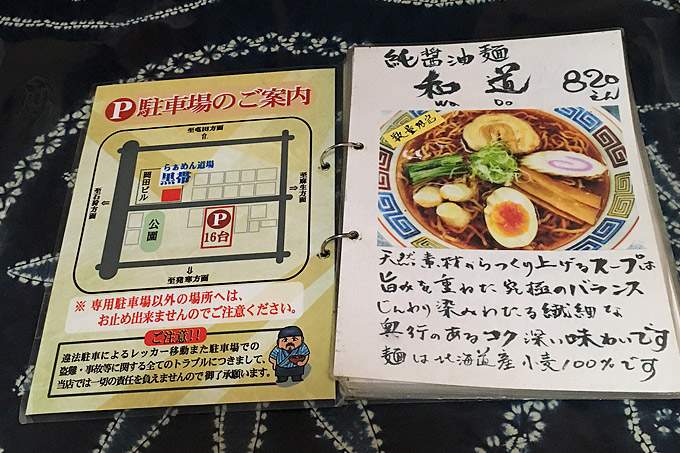 P 駐車場のご案内
至屯田方面
岡田ビル
らぁめん道場
黒帯
至石狩方面
至麻生方面
公園
P
16台
至発寒方面
※ 専用駐車場以外の場所へは、
お止め出来ませんのでご注意ください。
ご注意!!
違法駐車によるレッカー移動また駐車場での
盗難・事故等に関する全てのトラブルにつきまして、
当店では一切の責任を負えませんので御了承願います。
純醤油麺
和 道
WA DO
820えん
数量限定
天然素材からつくり上げるスープは
旨みを重ねた究極のバランス
じんわり染みわたる繊細な
奥行のあるコク深い味わいです
麺は北海道産小麦100%です